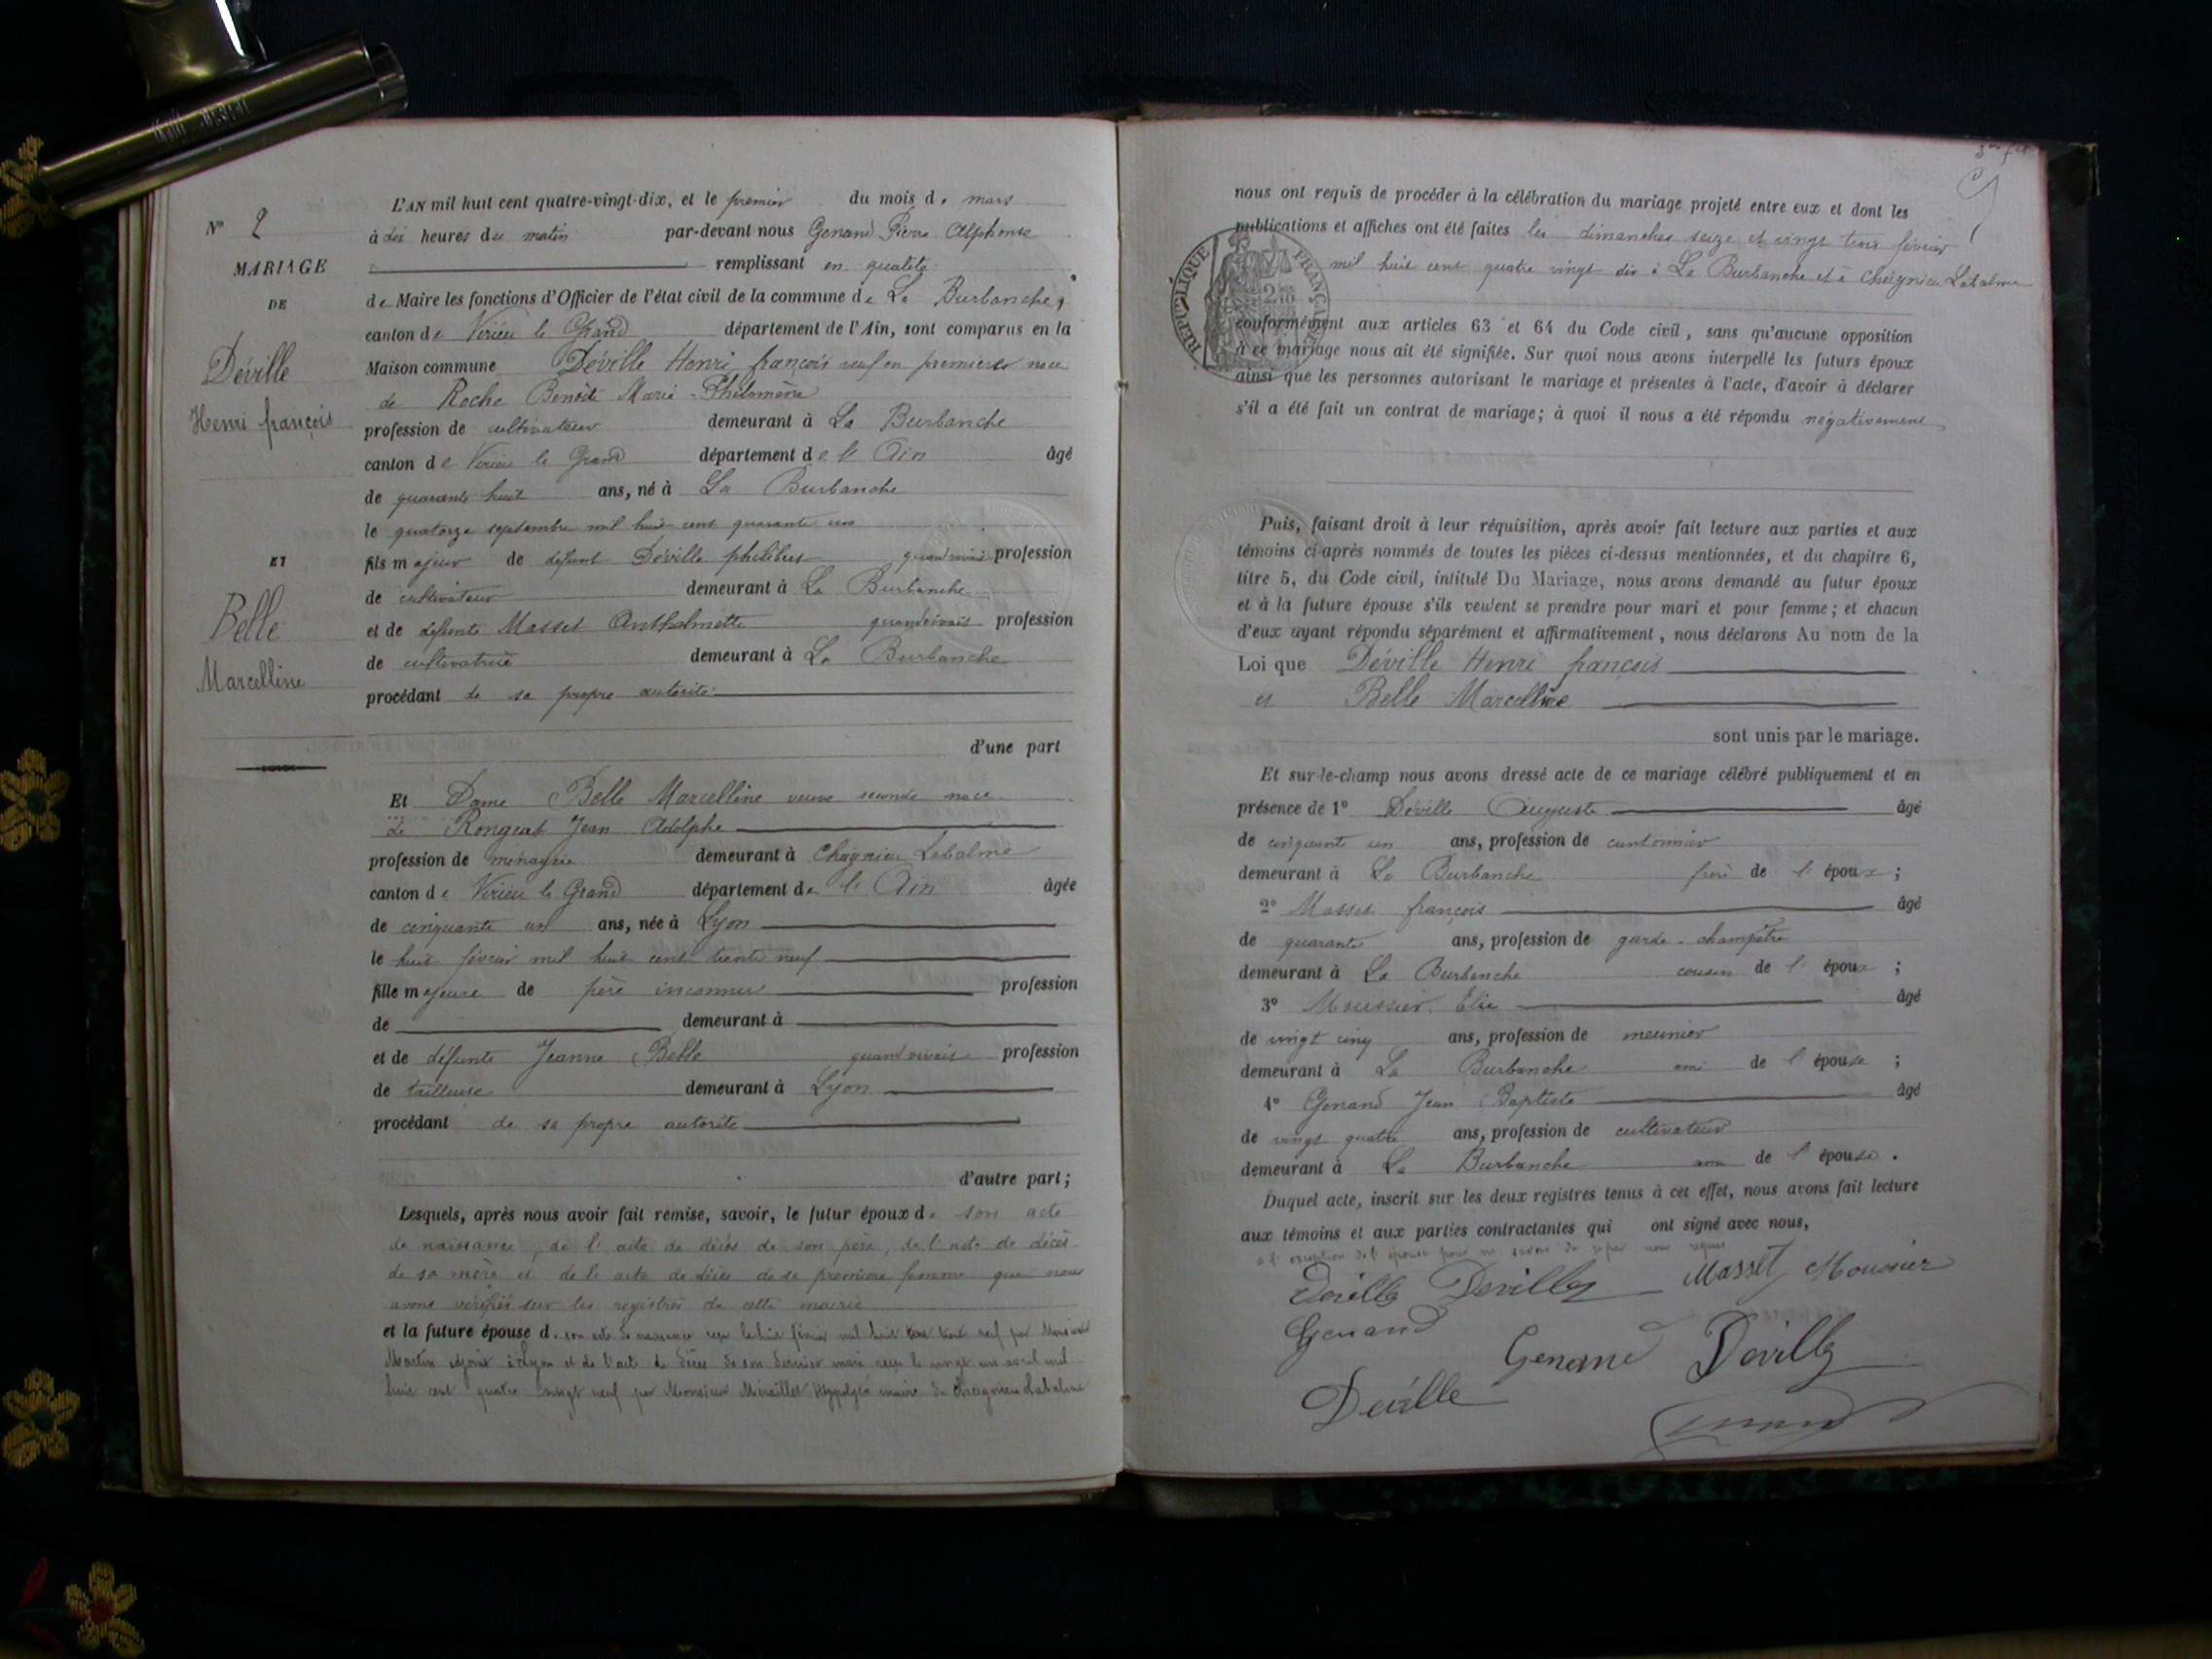 N° 2
MARIAGE
DE
Déville
Henri françois
ET
Belle
Marcelline
L'AN mil huit cent quatre-vingt-dix, et le premier du mois de mars
à dix heures du matin par-devant nous Genand Pierre Alphonse
remplissant en qualité
de Maire les fonctions d'Officier de l'état civil de la commune de La Burbanche,
canton de Virieu le Grand département de l'Ain, sont comparus en la
Maison commune Déville Henri françois veuf en premieres noce
de Roche Benoite Marie-Philomène
profession de cultivateur demeurant à La Burbanche
canton de Virieu le Grand département de l'Ain âgé
de quarante huit ans, né à La Burbanche
le quatorze septembre mil huit cent quarante un
fils majeur de défunt Déville philibert quand vivait profession
de cultivateur demeurant à La Burbanche
et de défunte Masset Anthelmette quand vivait profession
de cultivatrice demeurant à La Burbanche
procédant de sa propre autorité
d'une part
Et Dame Belle Marcelline veuve seconde noce
de Rongeat Jean Adolphe
profession de ménagère demeurant à Cheignieu Labalme
canton de Virieu le Grand département de l'Ain âgée
de cinquante un ans, née à Lyon
le huit février mil huit cent trente neuf
fille majeure de père inconnu profession
de demeurant à
et de défunte Jeanne Belle quand vivait profession
de tailleuse demeurant à Lyon
procédant de sa propre autorité
d'autre part;
Lesquels, après nous avoir fait remise, savoir, le futur époux de son acte
de naissance, de l'acte de décès de son père, de l'acte de décès
de sa mère et de l'acte de décès de sa première femme que nous
avons vérifiés sur les registres de cette mairie
et la future épouse d. son acte de naissance reçu le huit février mil huit cent trente neuf par Monsieur
Martin adjoint à Lyon et de l'acte de décès de son dernier mari reçu le vingt un avril mil
huit cent quatre vingt neuf par Monsieur Miraillet Hyppolyte maire de Cheignieu Labalme
nous ont requis de procéder à la célébration du mariage projeté entre eux et dont les
publications et affiches ont été faites les dimanches seize et vingt trois février
mil huit cent quatre vingt dix à La Burbanche et à Cheignieu Labalme
RÉPUBLIQUE FRANÇAISE
conformément aux articles 63 et 64 du Code civil, sans qu'aucune opposition
à ce mariage nous ait été signifiée. Sur quoi nous avons interpellé les futurs époux
ainsi que les personnes autorisant le mariage et présentes à l'acte, d'avoir à déclarer
s'il a été fait un contrat de mariage; à quoi il nous a été répondu négativement
Puis, faisant droit à leur réquisition, après avoir fait lecture aux parties et aux
témoins ci-après nommés de toutes les pièces ci-dessus mentionnées, et du chapitre 6,
titre 5, du Code civil, intitulé Du Mariage, nous avons demandé au futur époux
et à la future épouse s'ils veulent se prendre pour mari et pour femme; et chacun
d'eux ayant répondu séparément et affirmativement, nous déclarons Au nom de la
Loi que Déville Henri françois
et Belle Marcelline
sont unis par le mariage.
Et sur-le-champ nous avons dressé acte de ce mariage célébré publiquement et en
présence de 1° Déville Auguste âgé
de cinquante un ans, profession de cantonnier
demeurant à La Burbanche frère de l'époux;
2° Masset françois âgé
de quarante ans, profession de garde-champêtre
demeurant à La Burbanche cousin de l'époux;
3° Moussier Elie âgé
de vingt cinq ans, profession de meunier
demeurant à La Burbanche ami de l'épouse;
4° Genand Jean Baptiste âgé
de vingt quatre ans, profession de cultivateur
demeurant à La Burbanche ami de l'épouse.
Duquel acte, inscrit sur les deux registres tenus à cet effet, nous avons fait lecture
aux témoins et aux parties contractantes qui ont signé avec nous,
à l'exception de l'épouse pour ne savoir de ce par nous requis
Deville Deville Masset Moussier
Genand
Genand Deville
Deville